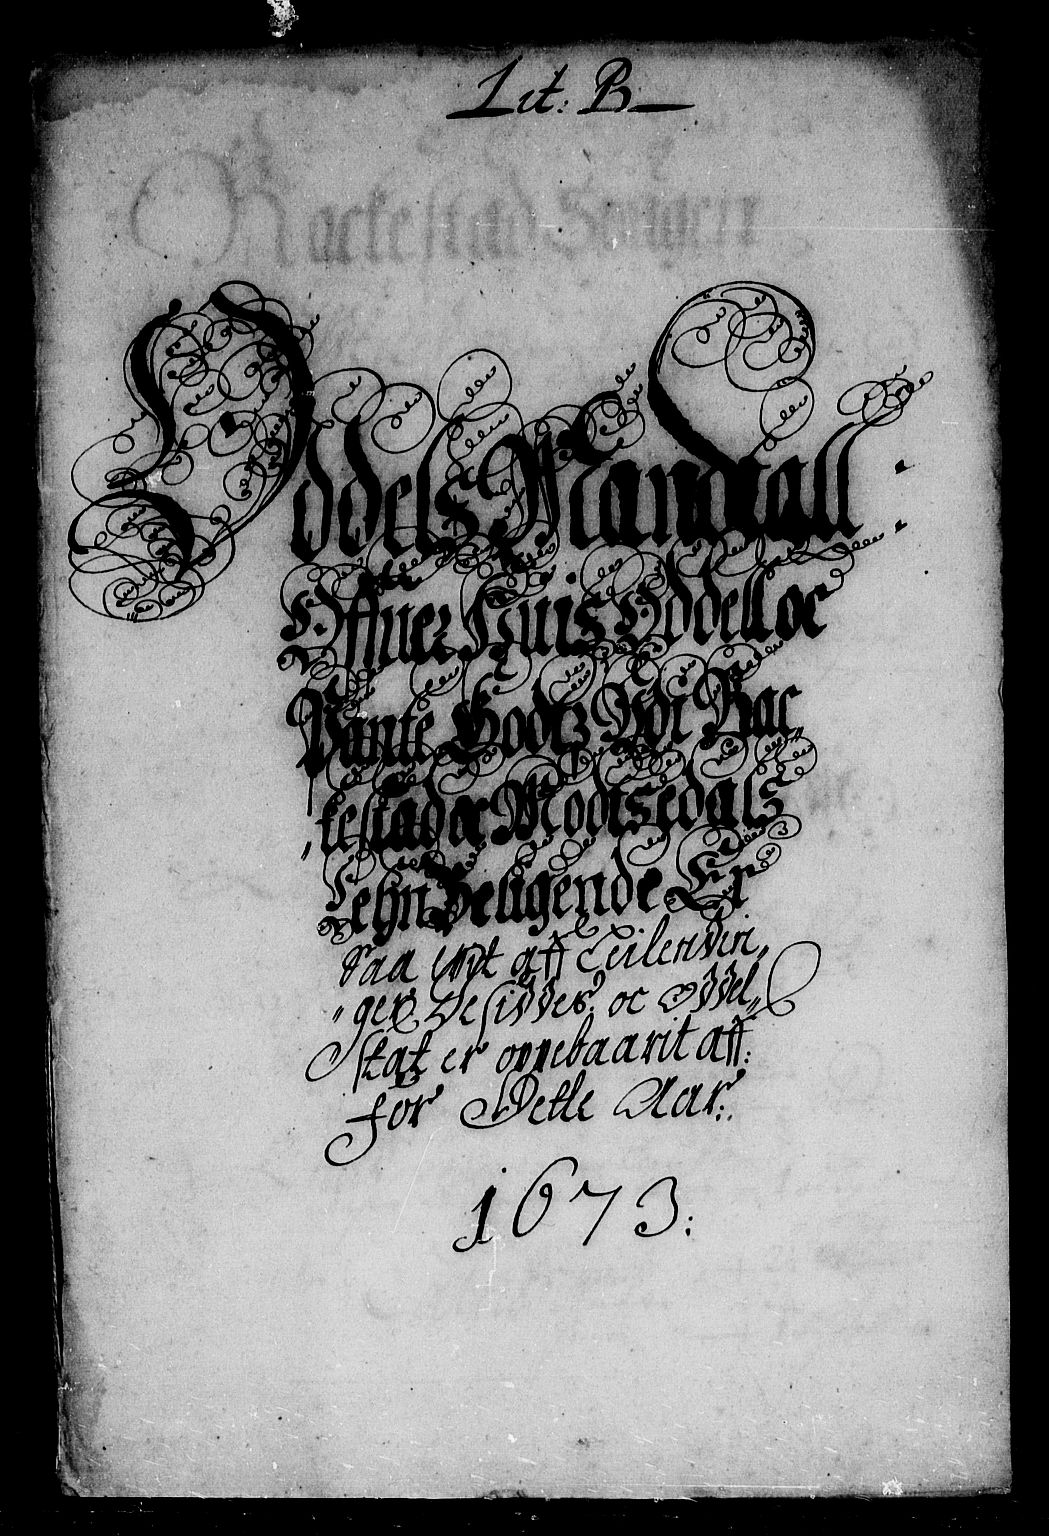 Lit: B
Oddels Mandtall :
Offuer Huis Oddell oc
Pante Godtz Udi Rac„
„kestad oc Modtsedals
Lehn Beligende Er
saa vit aff Leilendin„
„ger Besiddes, oc Oddel„
skat er oppebaarit aff:
for Dette Aar:
1673: